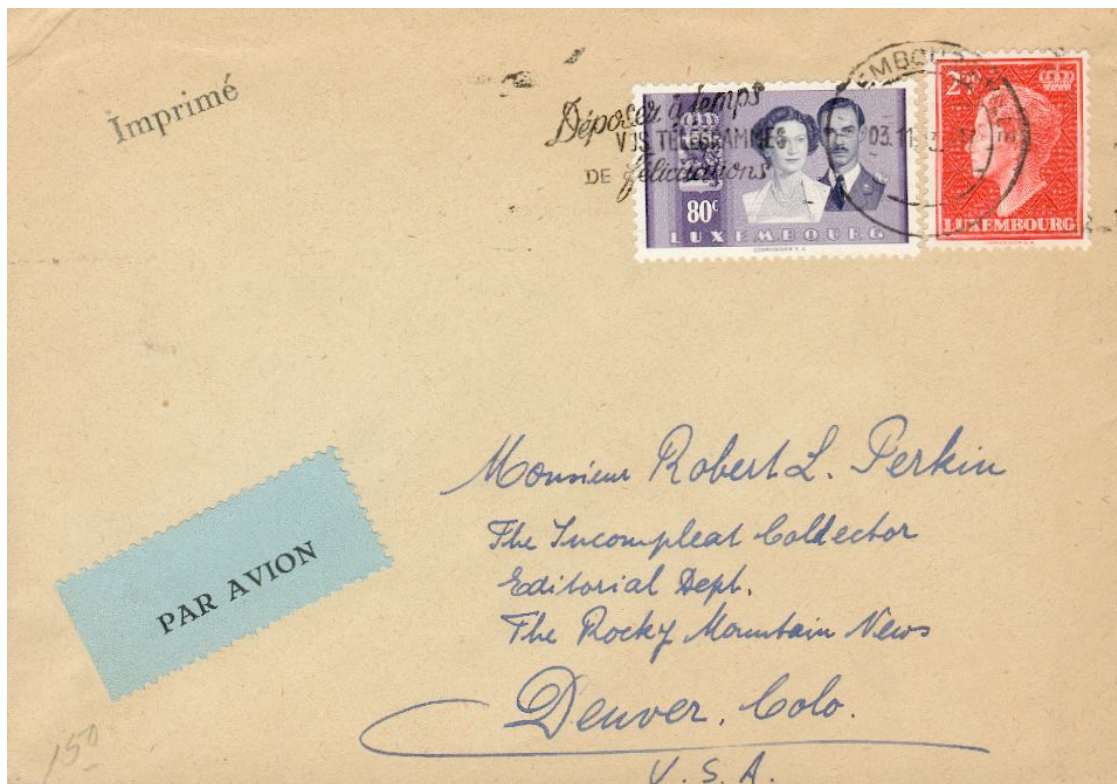 Imprimé
Déposer à temps
VOS TÉLÉGRAMMES
DE félicitations
03.11
80c
LUXEMBOURG
2.50
LUXEMBOURG
PAR AVION
Monsieur Robert L. Perkin
The Incompleat Collector
Editorial Dept.
The Rocky Mountain News
Denver, Colo.
U. S. A.
150